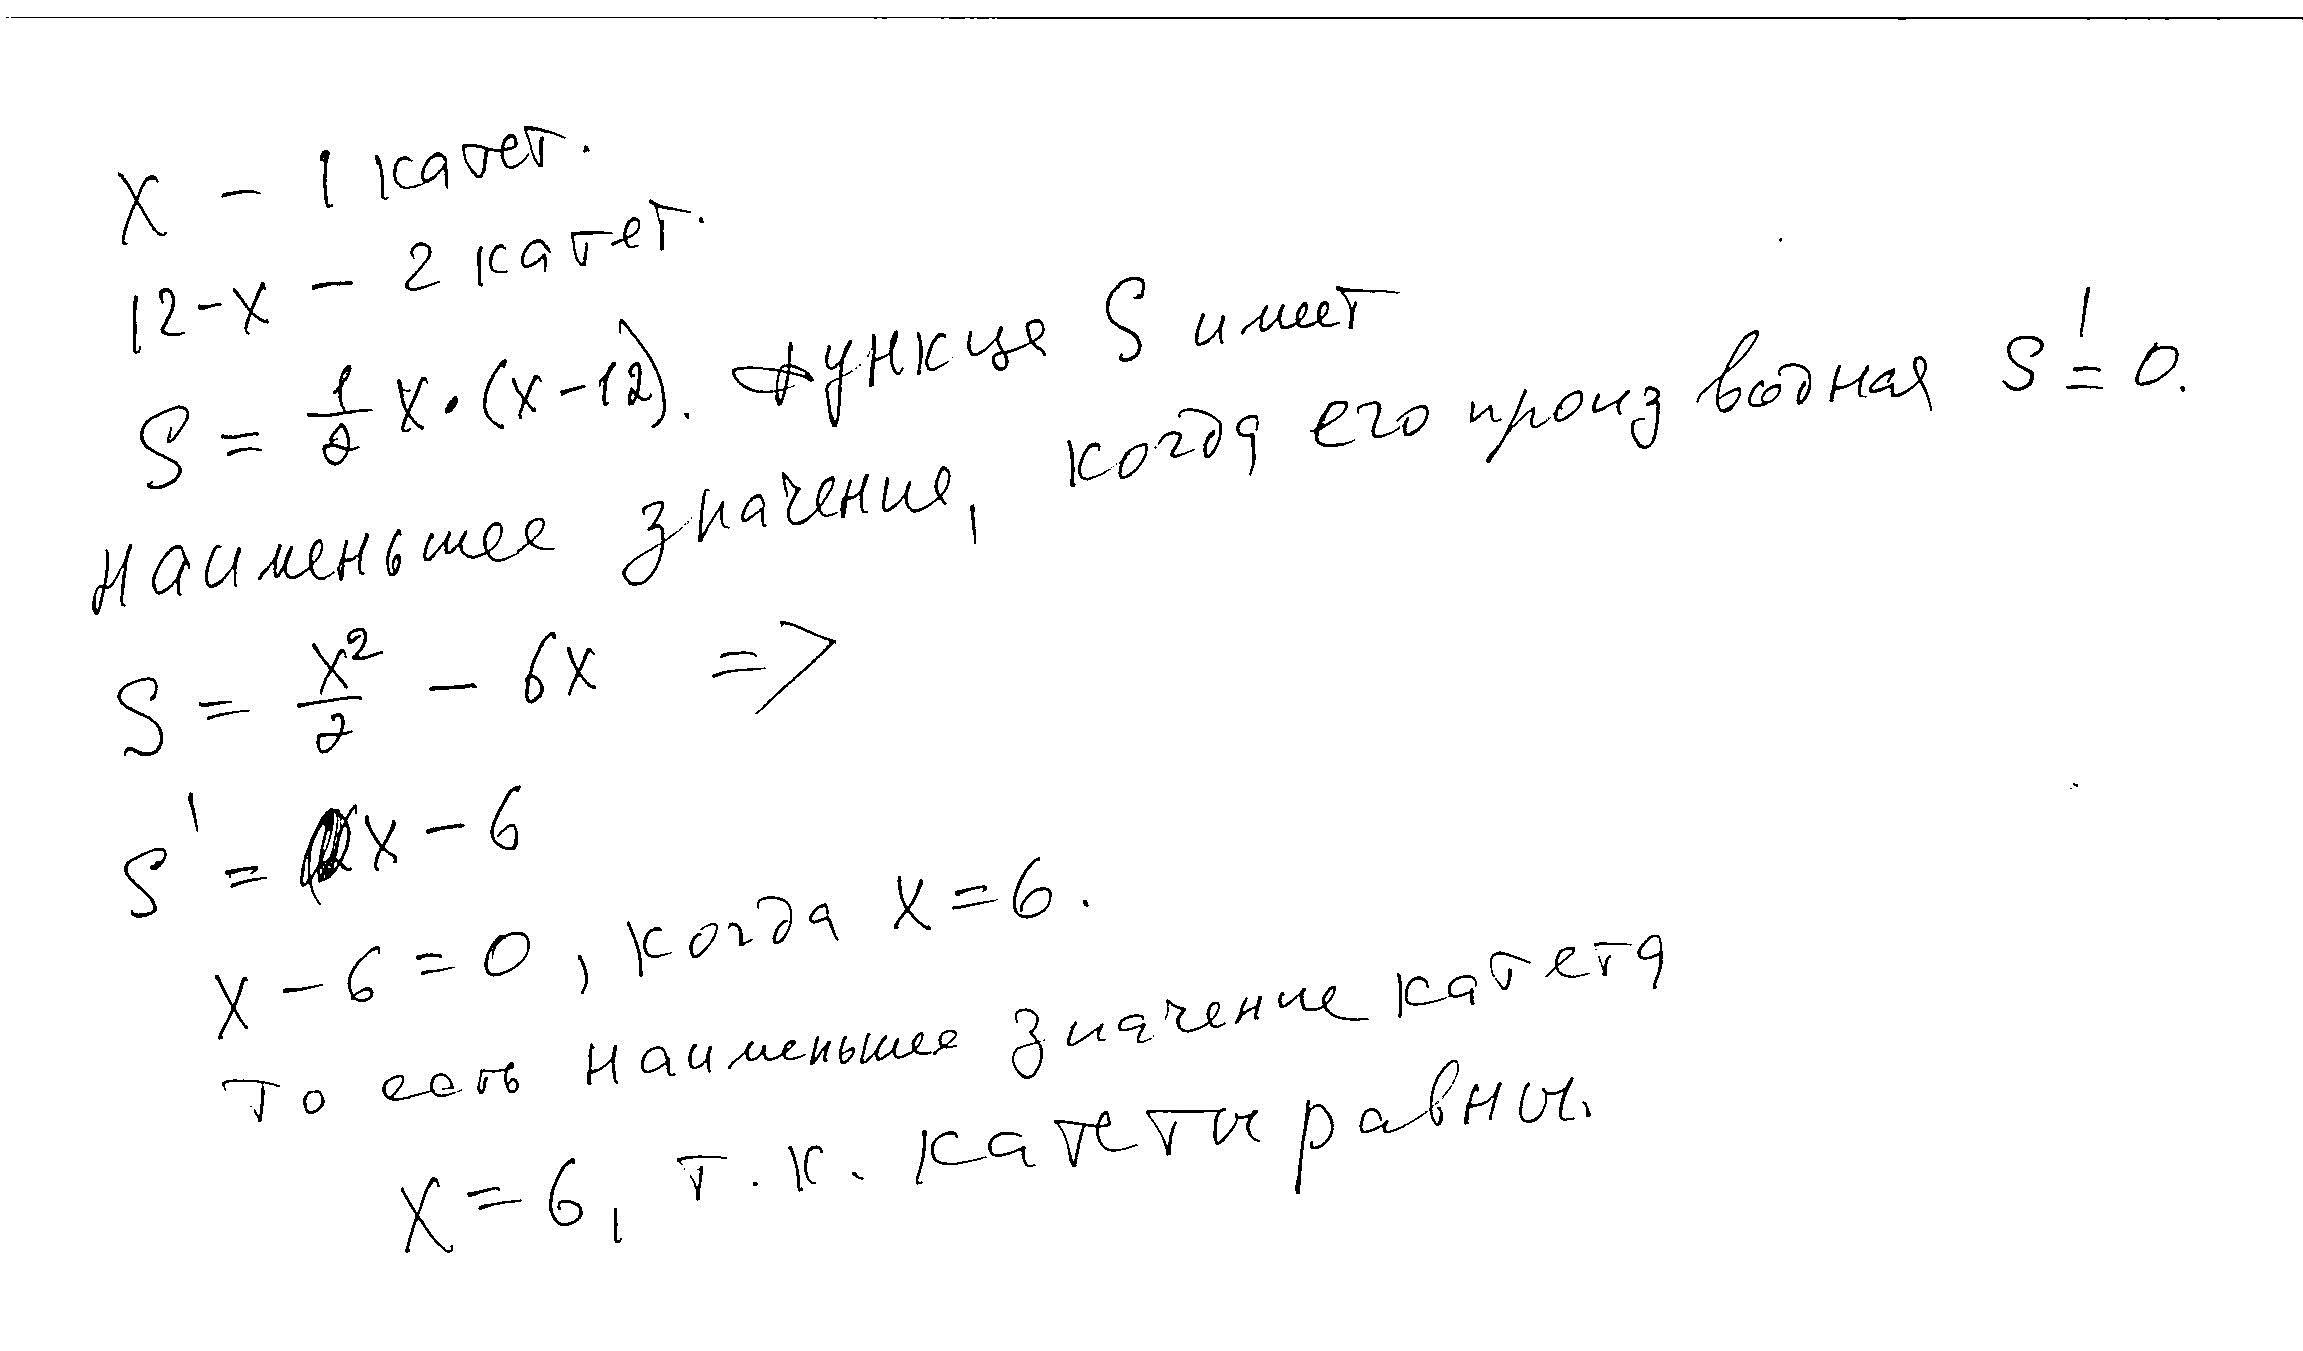 x - 1 катет.
12-x - 2 катет.
S = 1/2 x·(x-12). Функце S имеет
наименьшее значение, когда его производная S' = 0.
S = x²/2 - 6x =>
S' = x-6
x-6=0, когда x=6.
то есть наименьшее значение катета
x=6, т.к. катеты равны.